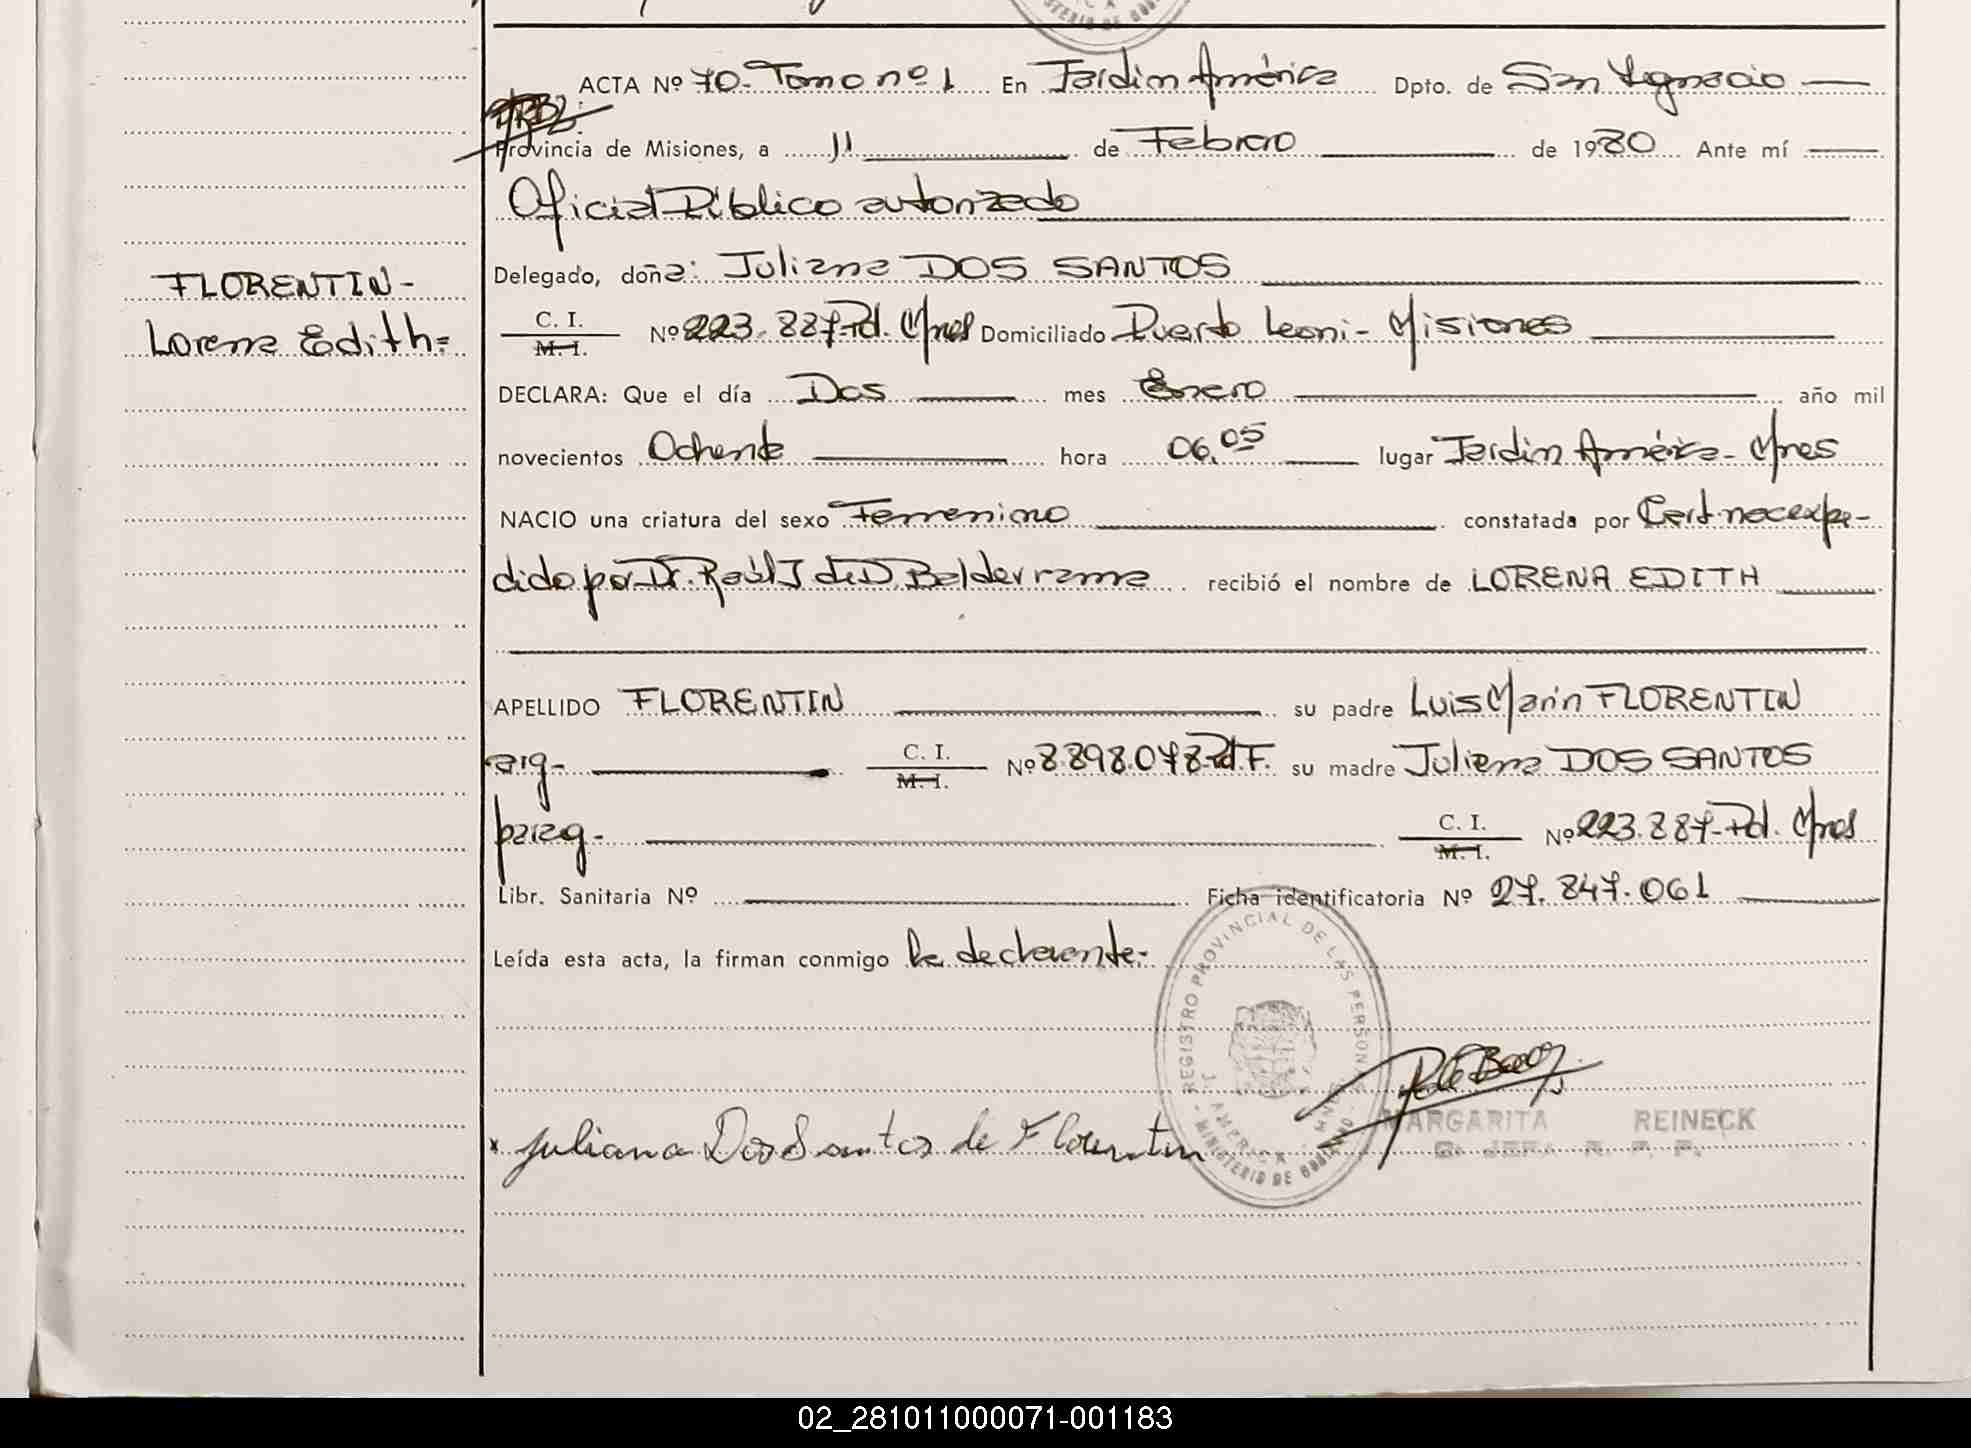 ACTA Nº 70. Tomo nº 1 En Jardin América Dpto. de San Ygnacio
Provincia de Misiones, a 11 de Febrero de 1980 Ante mí
Oficial Público autorizado
Delegado, doña: Juliana DOS SANTOS
FLORENTIN-
Lorena Edith=
C. I. M. I. Nº 223.887-Pol. Mnes Domiciliado Puerto Leoni - Misiones
DECLARA: Que el día Dos mes Enero año mil
novecientos Ochenta hora 06,05 lugar Jardin América - Mnes
NACIO una criatura del sexo Femenino constatada por Cert. nac expe-
dido por Dr. Raúl J. de D. Balderrama recibió el nombre de LORENA EDITH
APELLIDO FLORENTIN su padre Luis Marin FLORENTIN
arg- C. I. M. I. Nº 8.898.078-Pol F. su madre Juliana DOS SANTOS
parag- C. I. M. I. Nº 223.887-Pol. Mnes
Libr. Sanitaria Nº Ficha identificatoria Nº 27.847.061
Leída esta acta, la firman conmigo la declarante-
REGISTRO PROVINCIAL DE LAS PERSONAS
J. AMERICA - MNES
MINISTERIO DE GOBIERNO
x Juliana Dos Santos de Florentin
MARGARITA REINECK
02_281011000071-001183